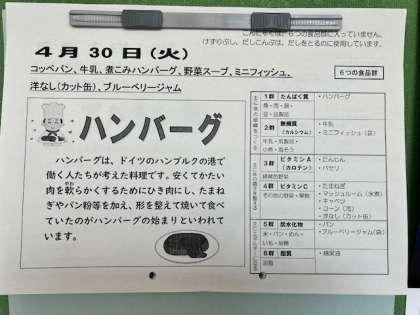 6つの食品群に入っていません。
けずりぶし、だしこんぶは、だしをとるのに使用しています。
4月30日(火)
コッペパン、牛乳、煮こみハンバーグ、野菜スープ、ミニフィッシュ、
洋なし(カット缶)、ブルーベリージャム
6つの食品群
ハンバーグ
ハンバーグは、ドイツのハンブルクの港で
働く人たちが考えた料理です。安くてかたい
肉を軟らかくするためにひき肉にし、たまね
ぎやパン粉等を加え、形を整えて焼いて食べ
ていたのがハンバーグの始まりといわれて
います。
1群 たんぱく質
魚・肉・卵・
豆・豆製品
・ハンバーグ
2群 無機質
(カルシウム)
牛乳・乳製品・
小魚・海そう
・牛乳
・ミニフィッシュ(袋)
3群 ビタミンA
(カロテン)
緑黄色野菜
・にんじん
・パセリ
4群 ビタミンC
その他の野菜・果物
・たまねぎ
・マッシュルーム(水煮)
・キャベツ
・コーン(冷)
・洋なし(カット缶)
5群 炭水化物
米・パン・めん・
いも・砂糖
・パン
・ブルーベリージャム(袋)
6群 脂質
油脂
・綿実油